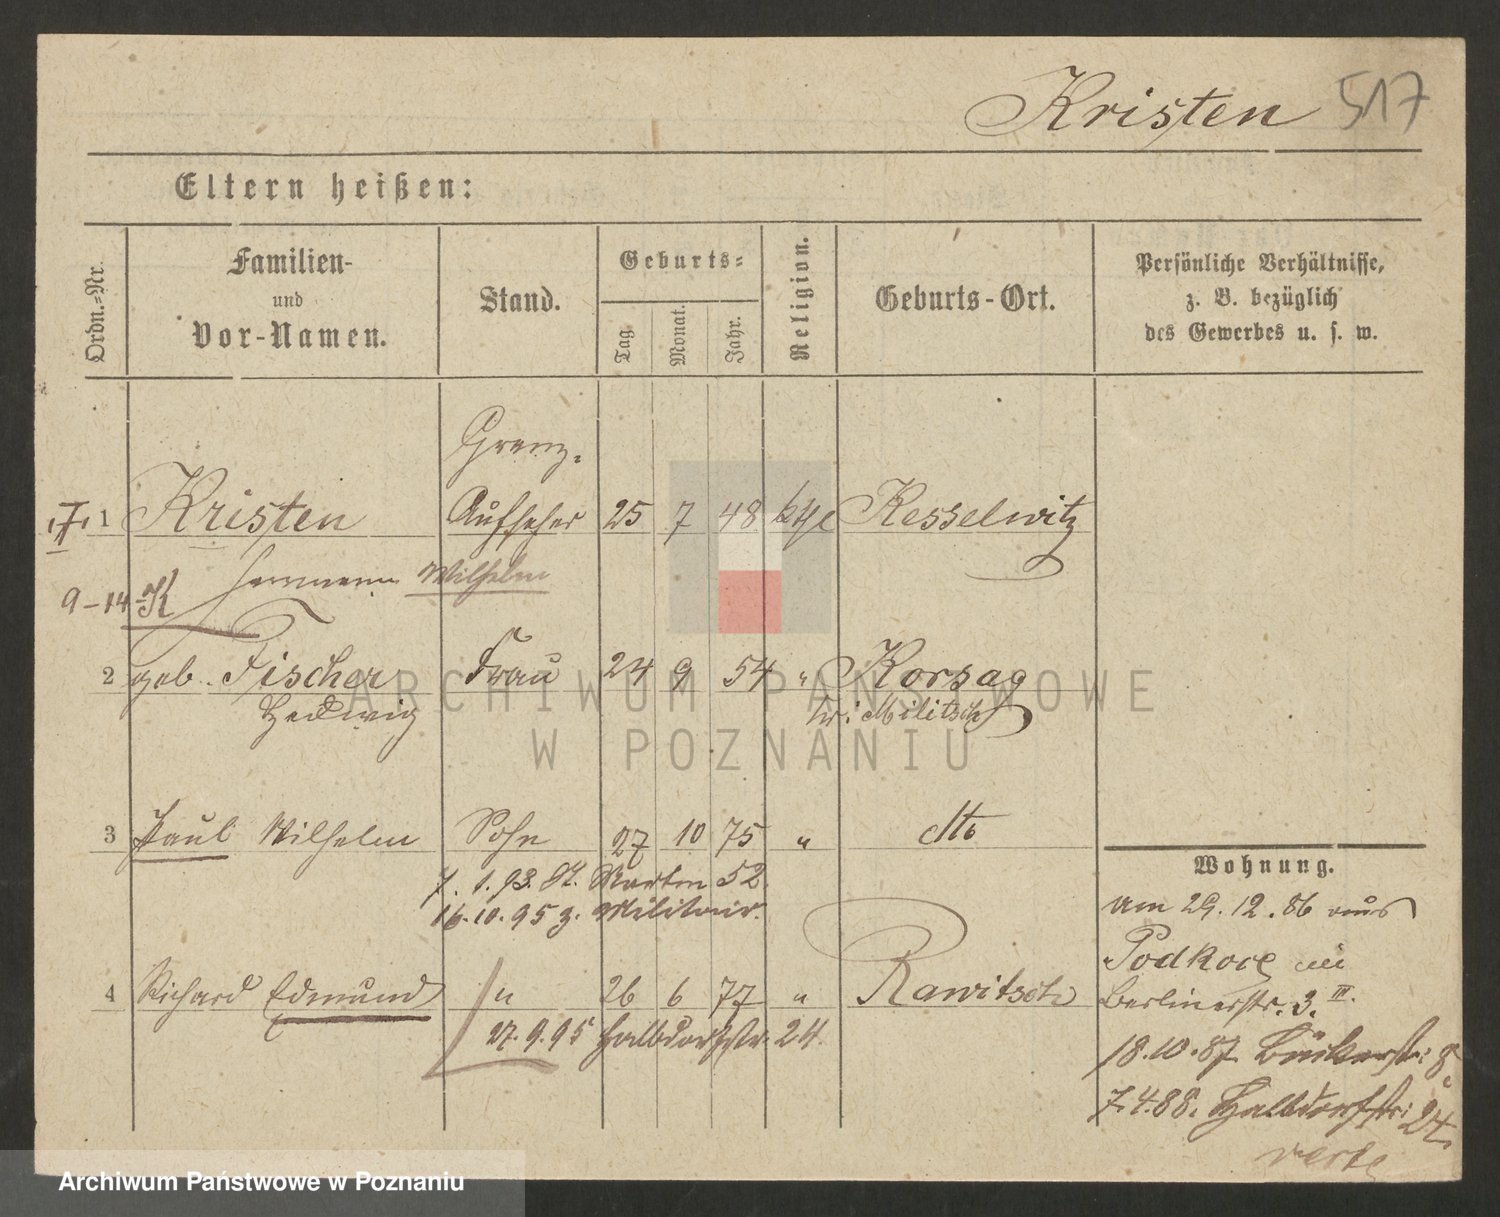 Kristen 517
Eltern heißen:
Ordn.-Nr.
Familien-
und
Vor-Namen.
Stand.
Geburts-
Tag.
Monat.
Jahr.
Religion.
Geburts-Ort.
Persönliche Verhältnisse,
z. B. bezüglich
des Gewerbes u. s. w.
Grenz-
1 Kristen Aufseher 25 7 48 Kesselwitz
Herrmann Wilhelm
9-14 K
2 geb. Fischer Frau 24 9 54 " Korsag
Hedwig Kr: Militsch
3 Paul Wilhelm Sohn 27 10 75 " dto
7. 1. 93. St. Martin 52
16.10.95 z. Militair.
4 Richard Edmund " 26 6 77 " Rawitsch
27.9.95 Halbdorfstr. 24.
Wohnung.
am 29.12.86 aus
Podkoce
Berlinerstr. 3. III.
18.10.87 Bäckerstr: 8
7.4.88. Halbdorfstr: 24.
verte
ARCHIWUM PAŃSTWOWE
W POZNANIU
Archiwum Państwowe w Poznaniu